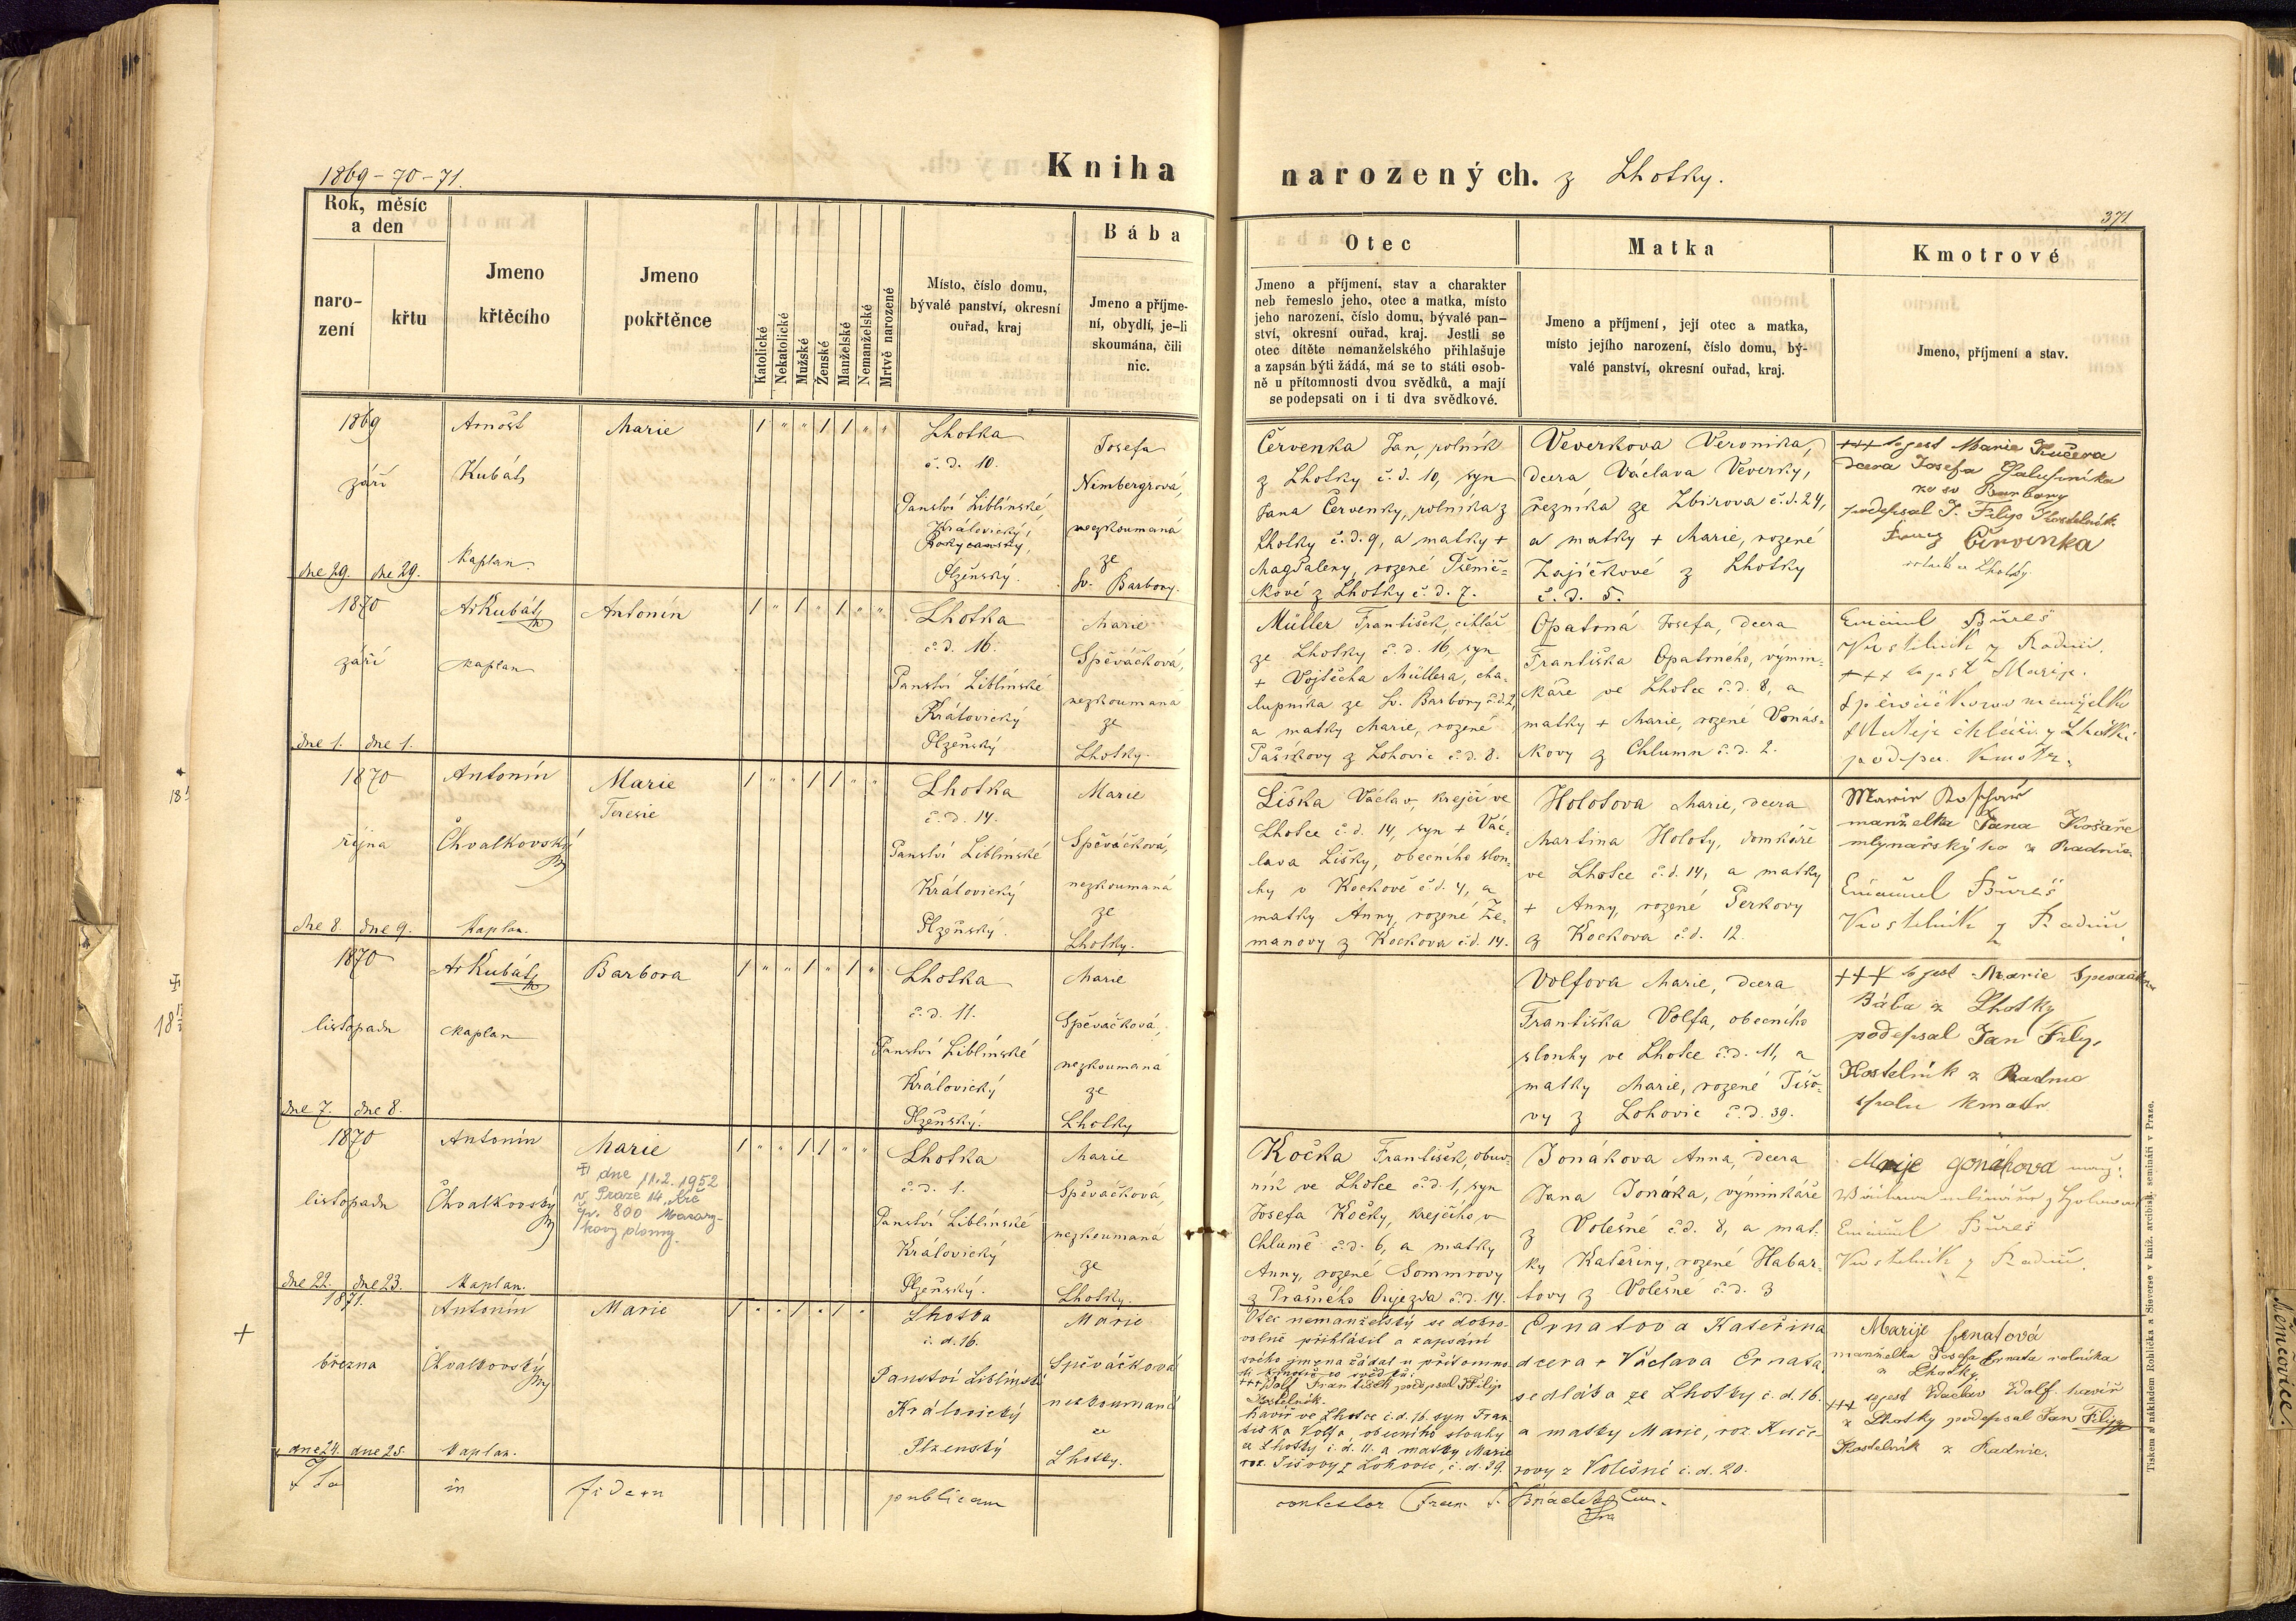 1869-70-71.
Kniha narozených. z Lhotky.
371
Rok, měsíc
a den
naro-
zení
křtu
Jmeno
křtěcího
Jmeno
pokřtěnce
Katolické
Nekatolické
Mužské
Ženské
Manželské
Nemanželské
Mrtvě narozené
Místo, číslo domu,
bývalé panství, okresní
ouřad, kraj
Bába
Jmeno a příjme-
ní, obydlí, je-li
skoumána, čili
nic.
Otec
Jmeno a příjmení, stav a charakter
neb řemeslo jeho, otec a matka, místo
jeho narození, číslo domu, bývalé pan-
ství, okresní ouřad, kraj. Jestli se
otec dítěte nemanželského přihlašuje
a zapsán býti žádá, má se to státi osob-
ně u přítomnosti dvou svědků, a mají
se podepsati on i ti dva svědkové.
Matka
Jmeno a příjmení, její otec a matka,
místo jejího narození, číslo domu, bý-
valé panství, okresní ouřad, kraj.
Kmotrové
Jmeno, příjmení a stav.
1869
září
dne 29. dne 29.
Arnošt
Kubát
Kaplan.
Marie
1 " " 1 1 " "
Lhotka
č. d. 10.
Panství Liblínské,
Královický,
Rokycanský,
Plzeňský.
Josefa
Nimbergrova,
nezkoumaná
ze
Sv. Barbory.
Červenka Jan, rolník
z Lhotky č. d. 10, syn
Jana Červenky, rolníka z
Lhotky č. d. 9, a matky +
Magdaleny, rozené Pšenič=
kové z Lhotky č. d. 7.
Veverkova Veronika,
dcera Václava Veverky,
řezníka ze Zbirova č. d. 24,
a matky + Marie, rozené
Zajíčkové z Lhotky
č. d. 5.
+++ to jest Marie Kučera
dcera Josefa
ze sv Barbory
podepsal J. Filip Kostelník
Červenka
rolník z Lhotky
1870
září
dne 1. dne 1.
Ar Kubát
Kaplan
Antonín
1 " 1 " 1 " "
Lhotka
č. d. 16.
Panství Liblínské
Královický
Plzeňský
Marie
Spěváčková,
nezkoumaná
ze
Lhotky.
Müller František, cihlář
ze Lhotky č. d. 16, syn
+ Vojtěcha Müllera, cha-
lupníka ze Sv. Barbory č. d. 2,
a matky Marie, rozené
Pašízkovy z Lohovic č. d. 8.
Opatrná Josefa, dcera
Františka Opatrného, výmin-
káře ve Lhotce č. d. 8, a
matky + Marie, rozené Vonás-
kovy z Chlumu č. d. 2.
Emanuel Bureš
Kostelník z Radnic.
+++ to jest Marije
podpsa. Kmotr.
1870
října
dne 8. dne 9.
Antonín
Chvalkovský
Kaplan.
Marie
Teresie
1 " " 1 1 " "
Lhotka
č. d. 14.
Panství Liblínské
Královický
Plzeňský.
Marie
Spěváčková,
nezkoumaná
ze
Lhotky.
Liška Václav, krejčí ve
Lhotce č. d. 14, syn + Vác-
lava Lišky, obecního slou-
hy v Kockově č. d. 4, a
matky Anny, rozené Ze-
manovy z Kockova č. d. 14.
Holotova Marie, dcera
Martina Holoty, domkáře
ve Lhotce č. d. 14, a matky
+ Anny, rozené Perkovy
z Kockova č. d. 12.
manželka Jana Košaře
mlynařskýho z Radnic
Emanuel Bureš
Kostelník z Radnic
1870
listopadu
dne 7. dne 8.
Ar Kubát
Kaplan
Barbora
1 " " 1 " 1 "
Lhotka
č. d. 11.
Panství Liblínské
Královický
Plzeňský.
Marie
Spěváčková,
nezkoumaná
ze
Lhotky
Volfova Marie, dcera
Františka Volfa, obecního
slouhy ve Lhotce č. d. 11, a
matky Marie, rozené Tišo-
vy z Lohovic č. d. 39.
+++ to jest Marie
Bába z Lhotky
podepsal Jan Filip
Kostelník z Radnic
1870
listopadu
dne 22. dne 23.
Antonín
Chvalkovský
Kaplan.
Marie
dne 11.2.1952
v Praze 14, Krč
čp. 800 Masary-
kovy domy.
1 " " 1 1 " "
Lhotka
č. d. 1.
Panství Liblínské
Královický
Plzeňský.
Marie
Spěváčková,
nezkoumaná
ze
Lhotky.
Kočka František, obuv-
ník ve Lhotce č. d. 1, syn
Josefa Kočky, krejčího v
Chlumě č. d. 6, a matky
Anny, rozené Sommrovy
z Prašného Oujezda č. d. 14.
Jonákova Anna, dcera
Jana Jonáka, výminkáře
z Volešné č. d. 8, a mat-
ky Kateřiny, rozené Habar-
tovy z Volešne č. d. 3
Marije Gonákova
Emanuel Bureš
Kostelník z Radnic.
+
1871.
března
dne 24. dne 25.
Antonín
Chvalkovský
Kaplan.
Marie
1 " " 1 " 1 "
Lhotka
č. d. 16.
Panství Liblínské
Královický
Plzenský
Marie
Spěváčková
nezkoumaná
ze
Lhotky.
Otec nemanželský se dobro-
volně přihlásil a zapsání
svého jmena žádal u přítomno-
+++ Volf František podepsal J Filip
Kostelník.
havíř ve Lhotce č. d. 16. syn Fran-
tiška Volfa, obecního slouhy
ze Lhotky č. d. 11. a matky Marie
roz. Tišovy z Lohovic, č. d. 39.
Ernatova Kateřina
dcera + Václava Ernata
sedláka ze Lhotky č. d. 16.
a matky Marie, roz. Kuče-
rovy z Volešné č. d. 20.
Marije Ernatová
manželka Josefa Ernata rolníka
z Lhotky.
+++ to jest Václav Wolf havíř
z Lhotky podepsal Jan Filip
Kostelník z Radnic.
in fidem publicam
contestor
Tiskem a nákladem Rohlíčka a Sieverse v kníž. arcibisk. semináři v Praze.
Němčovice.